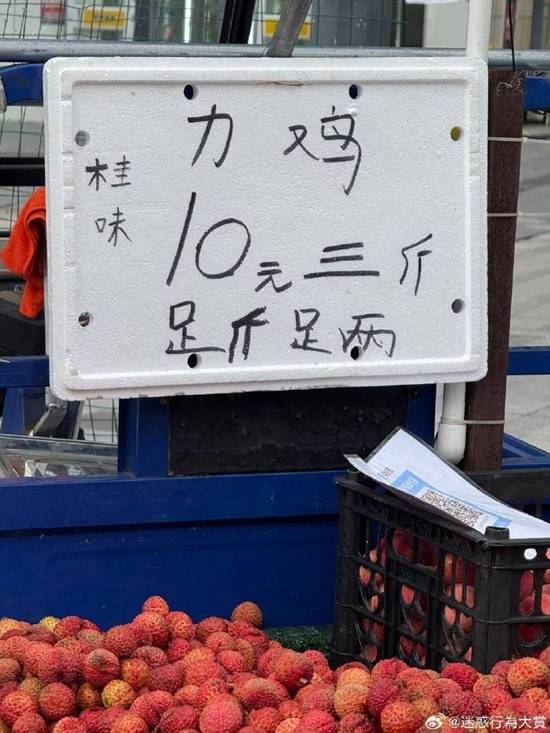 力鸡
桂味
10元三斤
足斤足两
@迷惑行為大賞